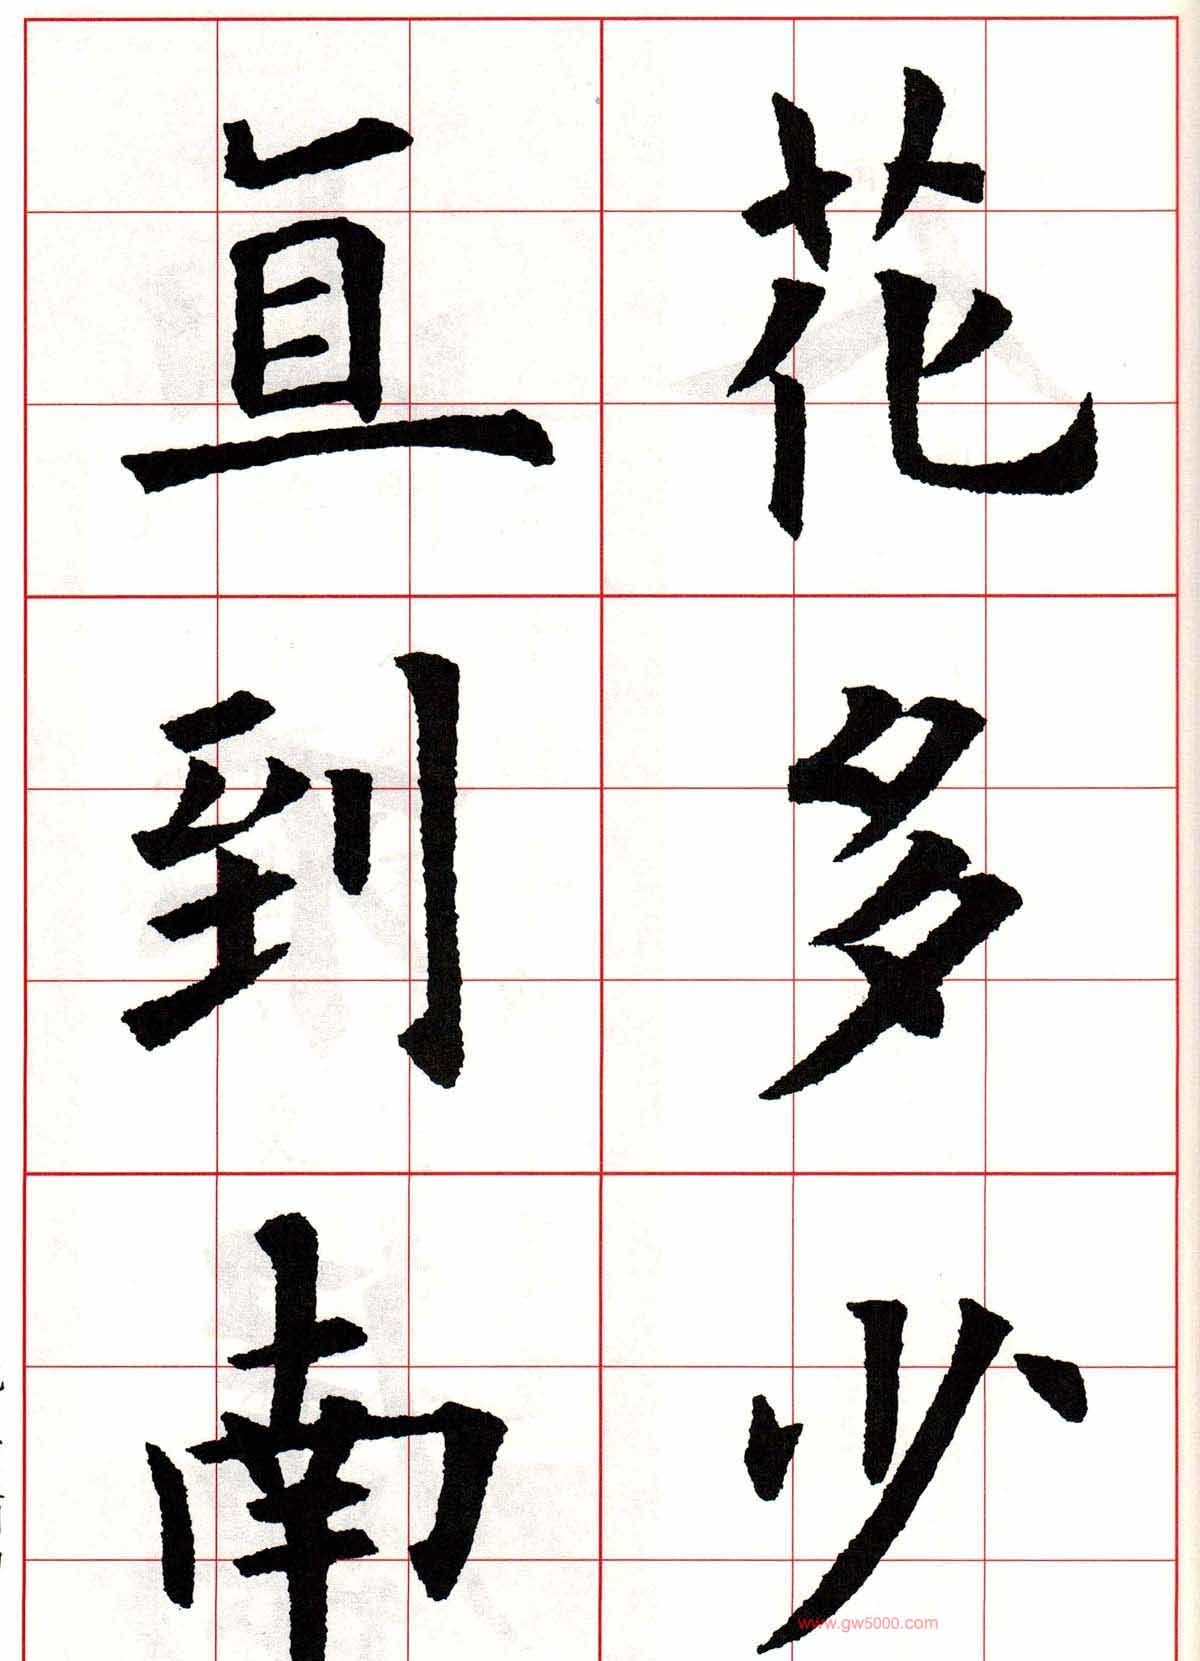 花多少
直到南
www.gw5000.com